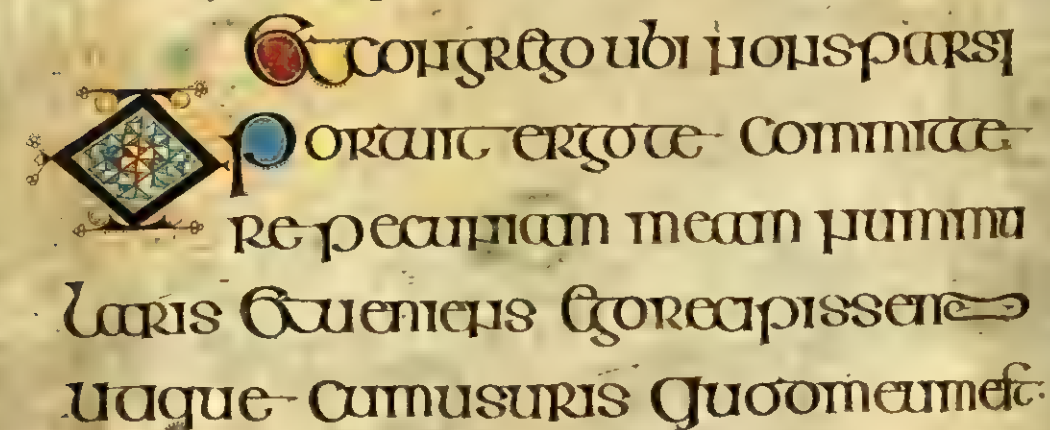 Et congrego ubi non sparsi
Oportuit ergo te committe
re pecuniam meam nummu
laris et ueniens ego recipissem
utique cum usuris quod meum est